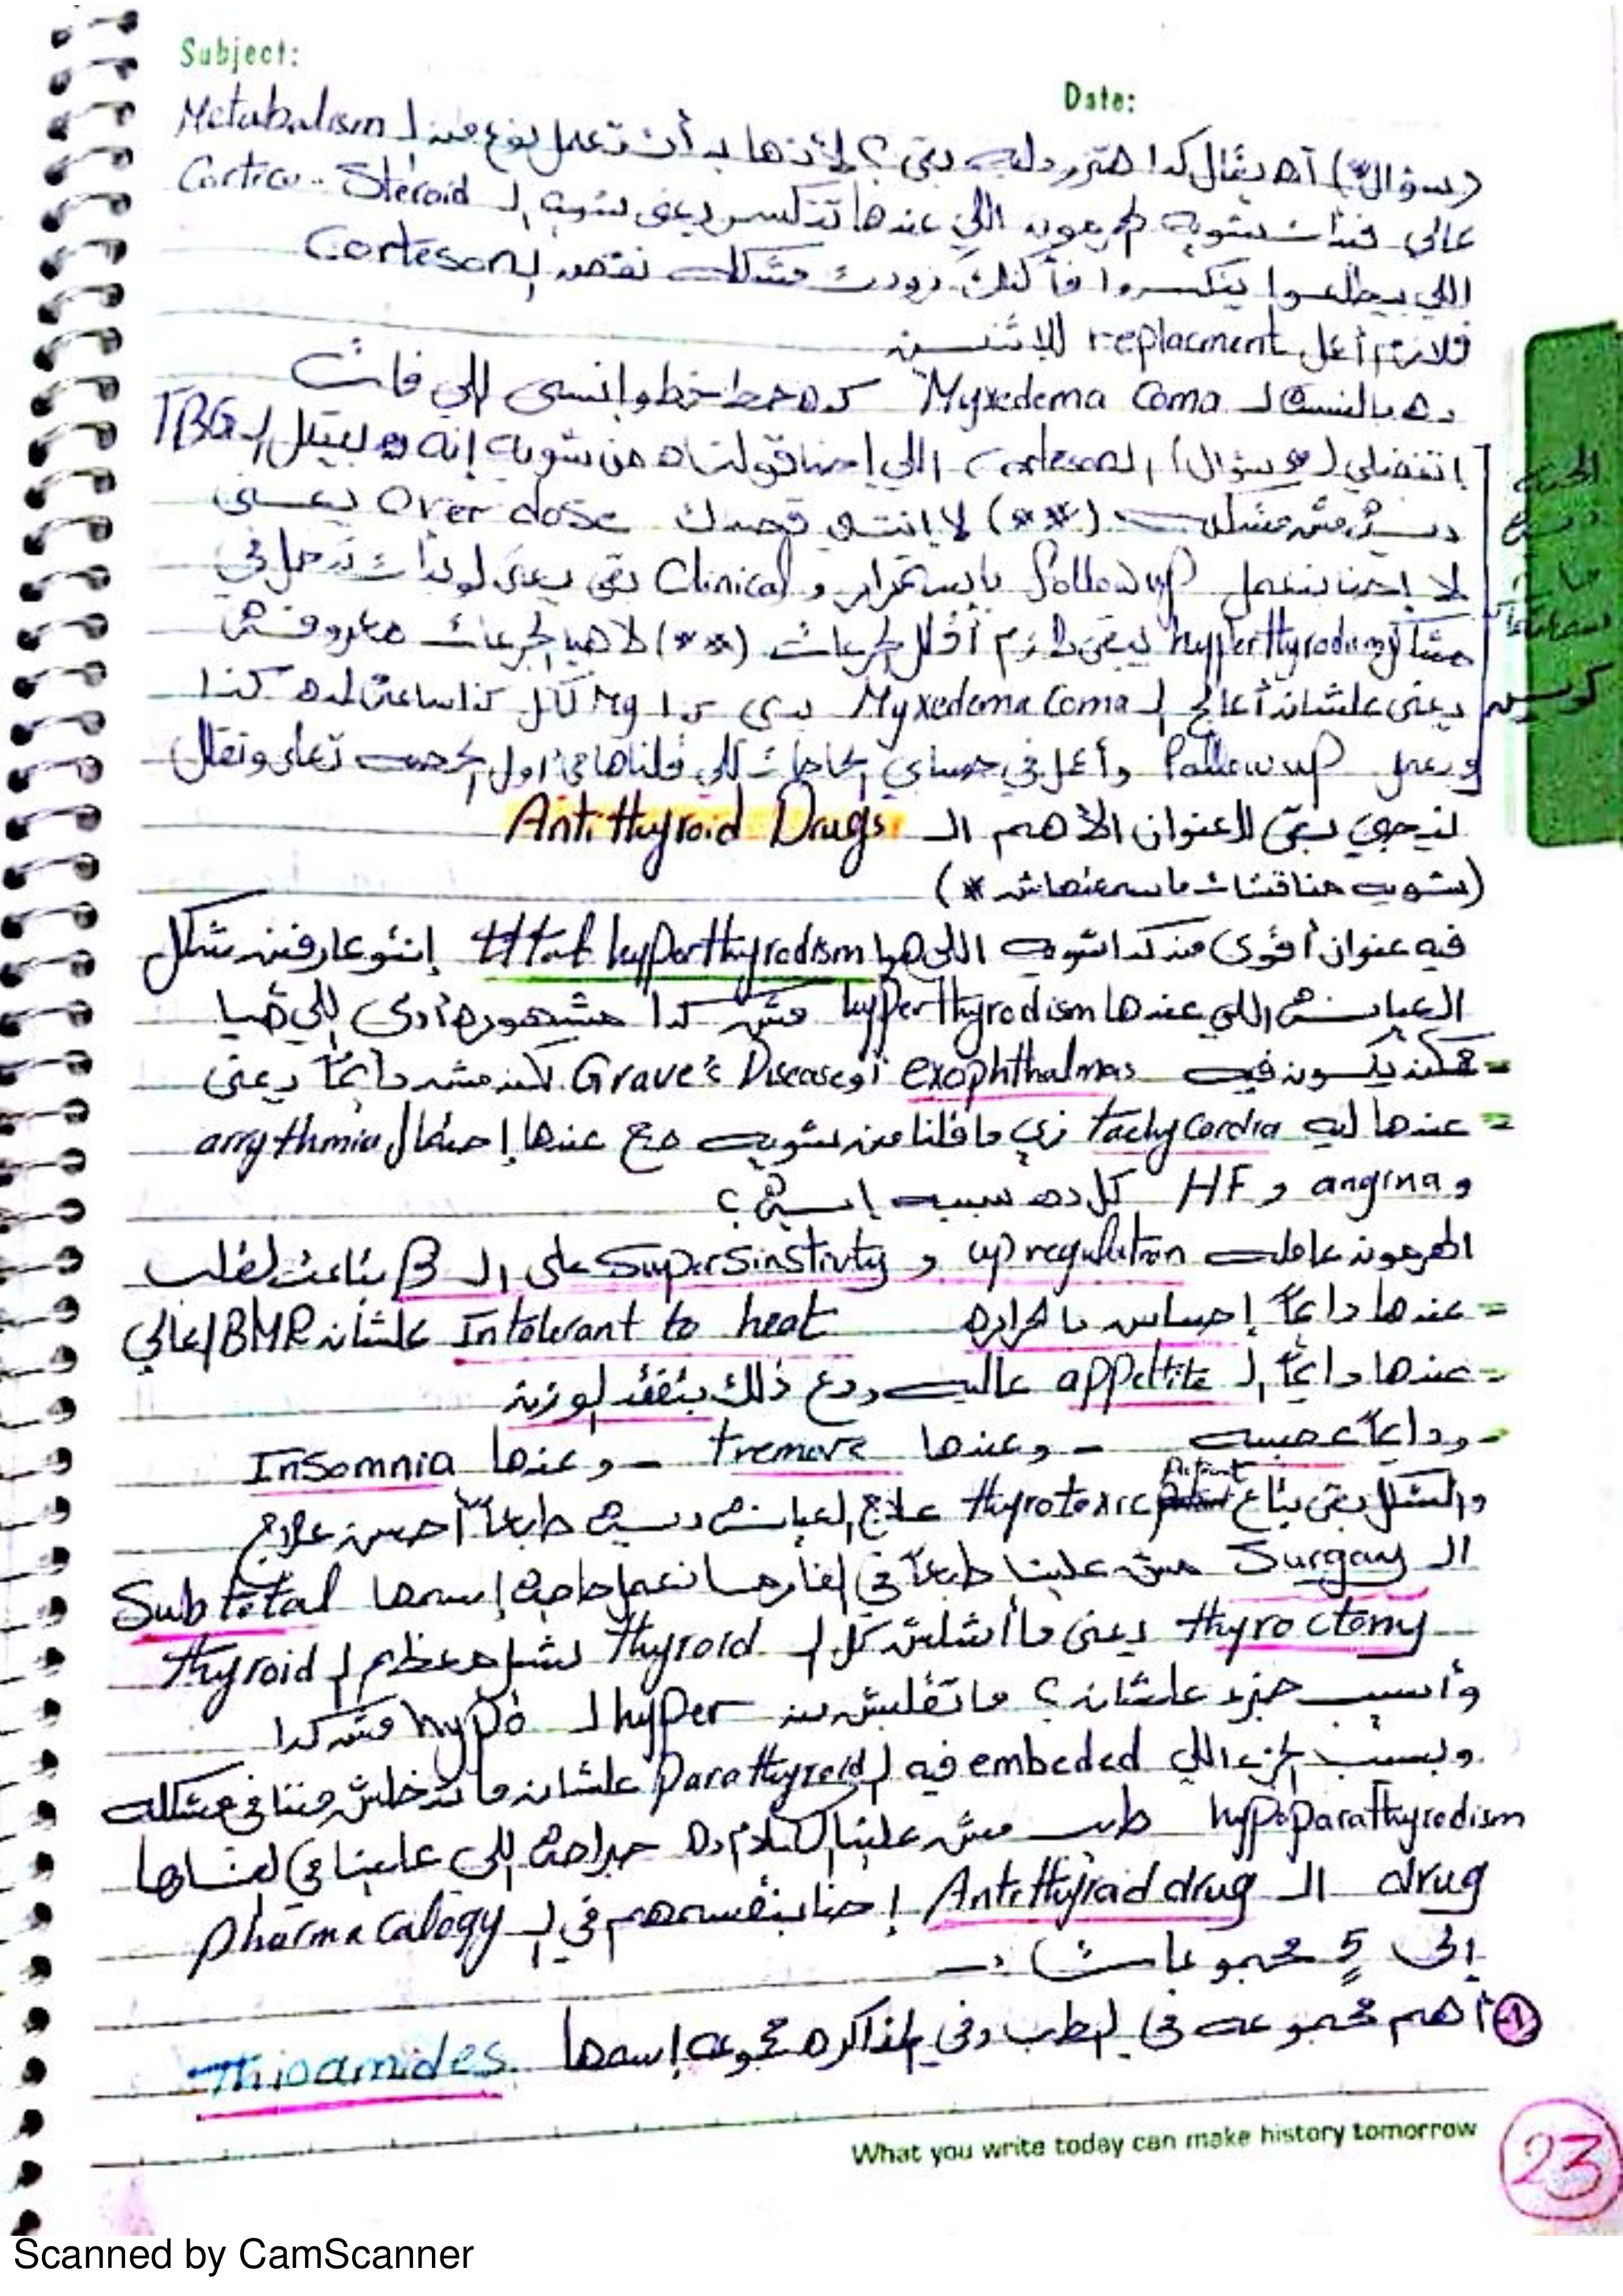 Subject:
Date:
(سؤال*) آه يقال كدا هتزود ليه بقى؟ لأنها بدأت تعمل نوع من ال Metabolism
عالي فبدأت شوية الهرمون اللي عندها تتكسر يعني شوية ال Cortico-Steroid
اللي بيطلعوا يتكسروا فأكنك زودت مشكلة نقص ال Corteson
فلازم أعمل replacment للإثنين
ده بالنسبة ل Myxedema Coma كده حط خط وانسى اللي فات
إتفضلي (سؤال) ال Corteson اللي إحنا قولناه من شوية إنه بيقلل ال TBG
مش مشكلة (**) لا إنتي قصدك Over dose يعني
لا إحنا بنعمل follow up باستمرار و Clinical بقى يعني لو بدأت تدخل في
مشاكل hyperthyrodism يبقى لازم أقلل الجرعات (**) لا هي الجرعات معروفة
يعني علشان أعالج ال Myxedema Coma بدي كذا Mg لكل كذا ساعة لمدة كذا
وبعمل Follow up وأعمل في حسابي الحاجات اللي قلناها في أول الحصة تعلى وتقلل
نيجي بقى للعنوان الأهم ال Antithyroid Drugs
(شوية مناقشات ماسمعنهاش *)
فيه عنوان أقوى من كدا شوية اللي هو ttt of hyperthyrodism إنتوا عارفين شكل
العيانة اللي عندها hyperthyrodism مش كدا مشهورة أدي اللي هيا
= ممكن يكون فيه exophthalmas أو Grave's Disease لكن مش دايماً يعني
= عندها ليه tachycardia زي ما قلنا من شوية مع عندها إحتمال arrythmia
و angina و HF كل ده سببه إيه؟
الهرمون عامله upregulation و SuperSinstivty على ال β بتاعت القلب
= عندها دايماً إحساس بالحرارة Intolerant to heat علشان BMR عالي
- عندها دايماً ال appetite عالية ومع ذلك بتفقد الوزن
- ودايماً عصبية - وعندها tremors - وعندها Insomnia
والشكل بقى بتاع thyrotoxic patient علاج العيانة دي طبعاً أحسن علاج
ال Surgary مش علينا طبعاً في الفارما نعمل حاجة إسمها Subtotal
thyroctomy يعني ما أشلش كل ال thyroid نشيل معظم ال thyroid
وأسيب جزء علشان؟ ماتقلبش من hyper ل hypo مش كدا
وبسيب الجزء اللي embeded فيه ال Parathyroid علشان ماتدخلش مننا في مشكلة
hypoparathyrodism طيب مش علينا الكلام ده جراحة اللي علينا في الفارما
drug ال Antithyroid drug إحنا بنقسمهم في ال pharmacalogy
إلى 5 مجموعات :-
1- أهم مجموعة في الطب وفي المذاكرة مجموعة إسمها Thioamides
What you write today can make history tomorrow
23
Scanned by CamScanner